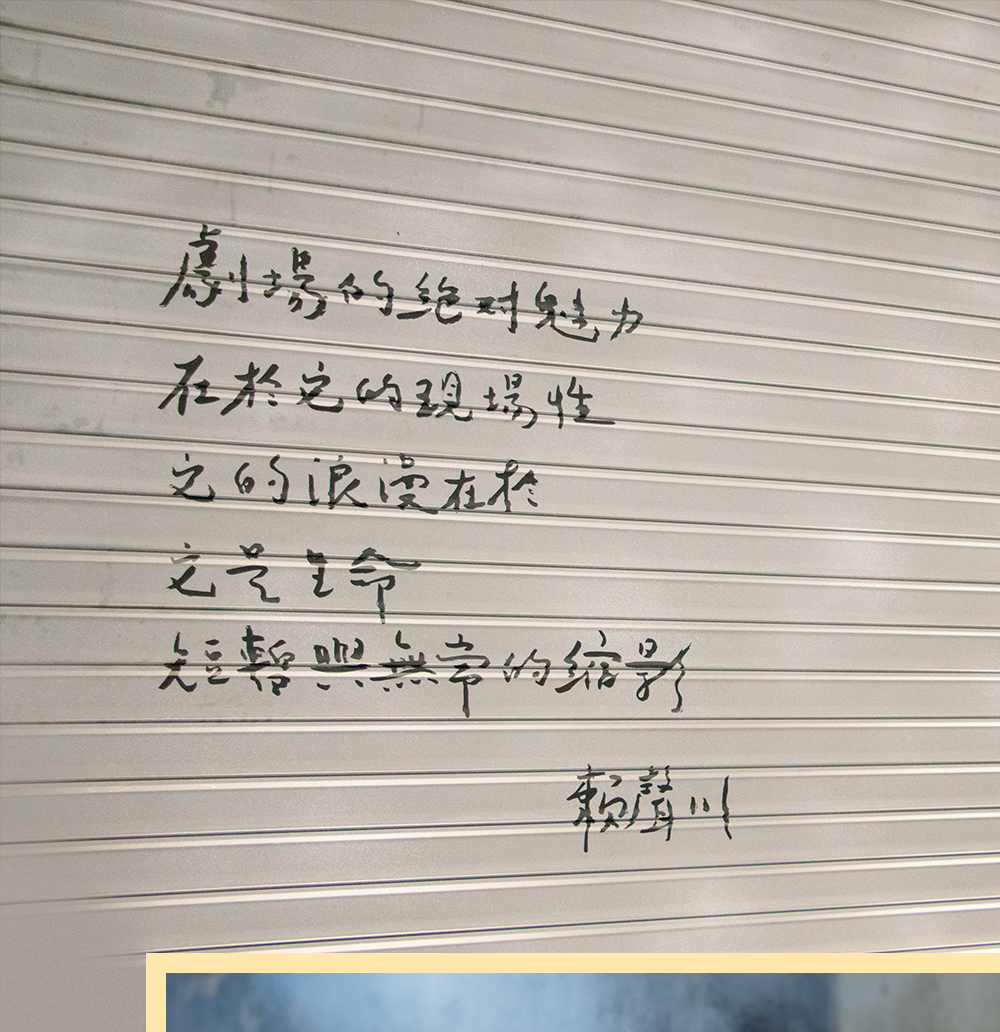 劇場的絕对魅力
在於它的現場性
它的浪漫在於
它是生命
短暫與無常的縮影
賴聲川